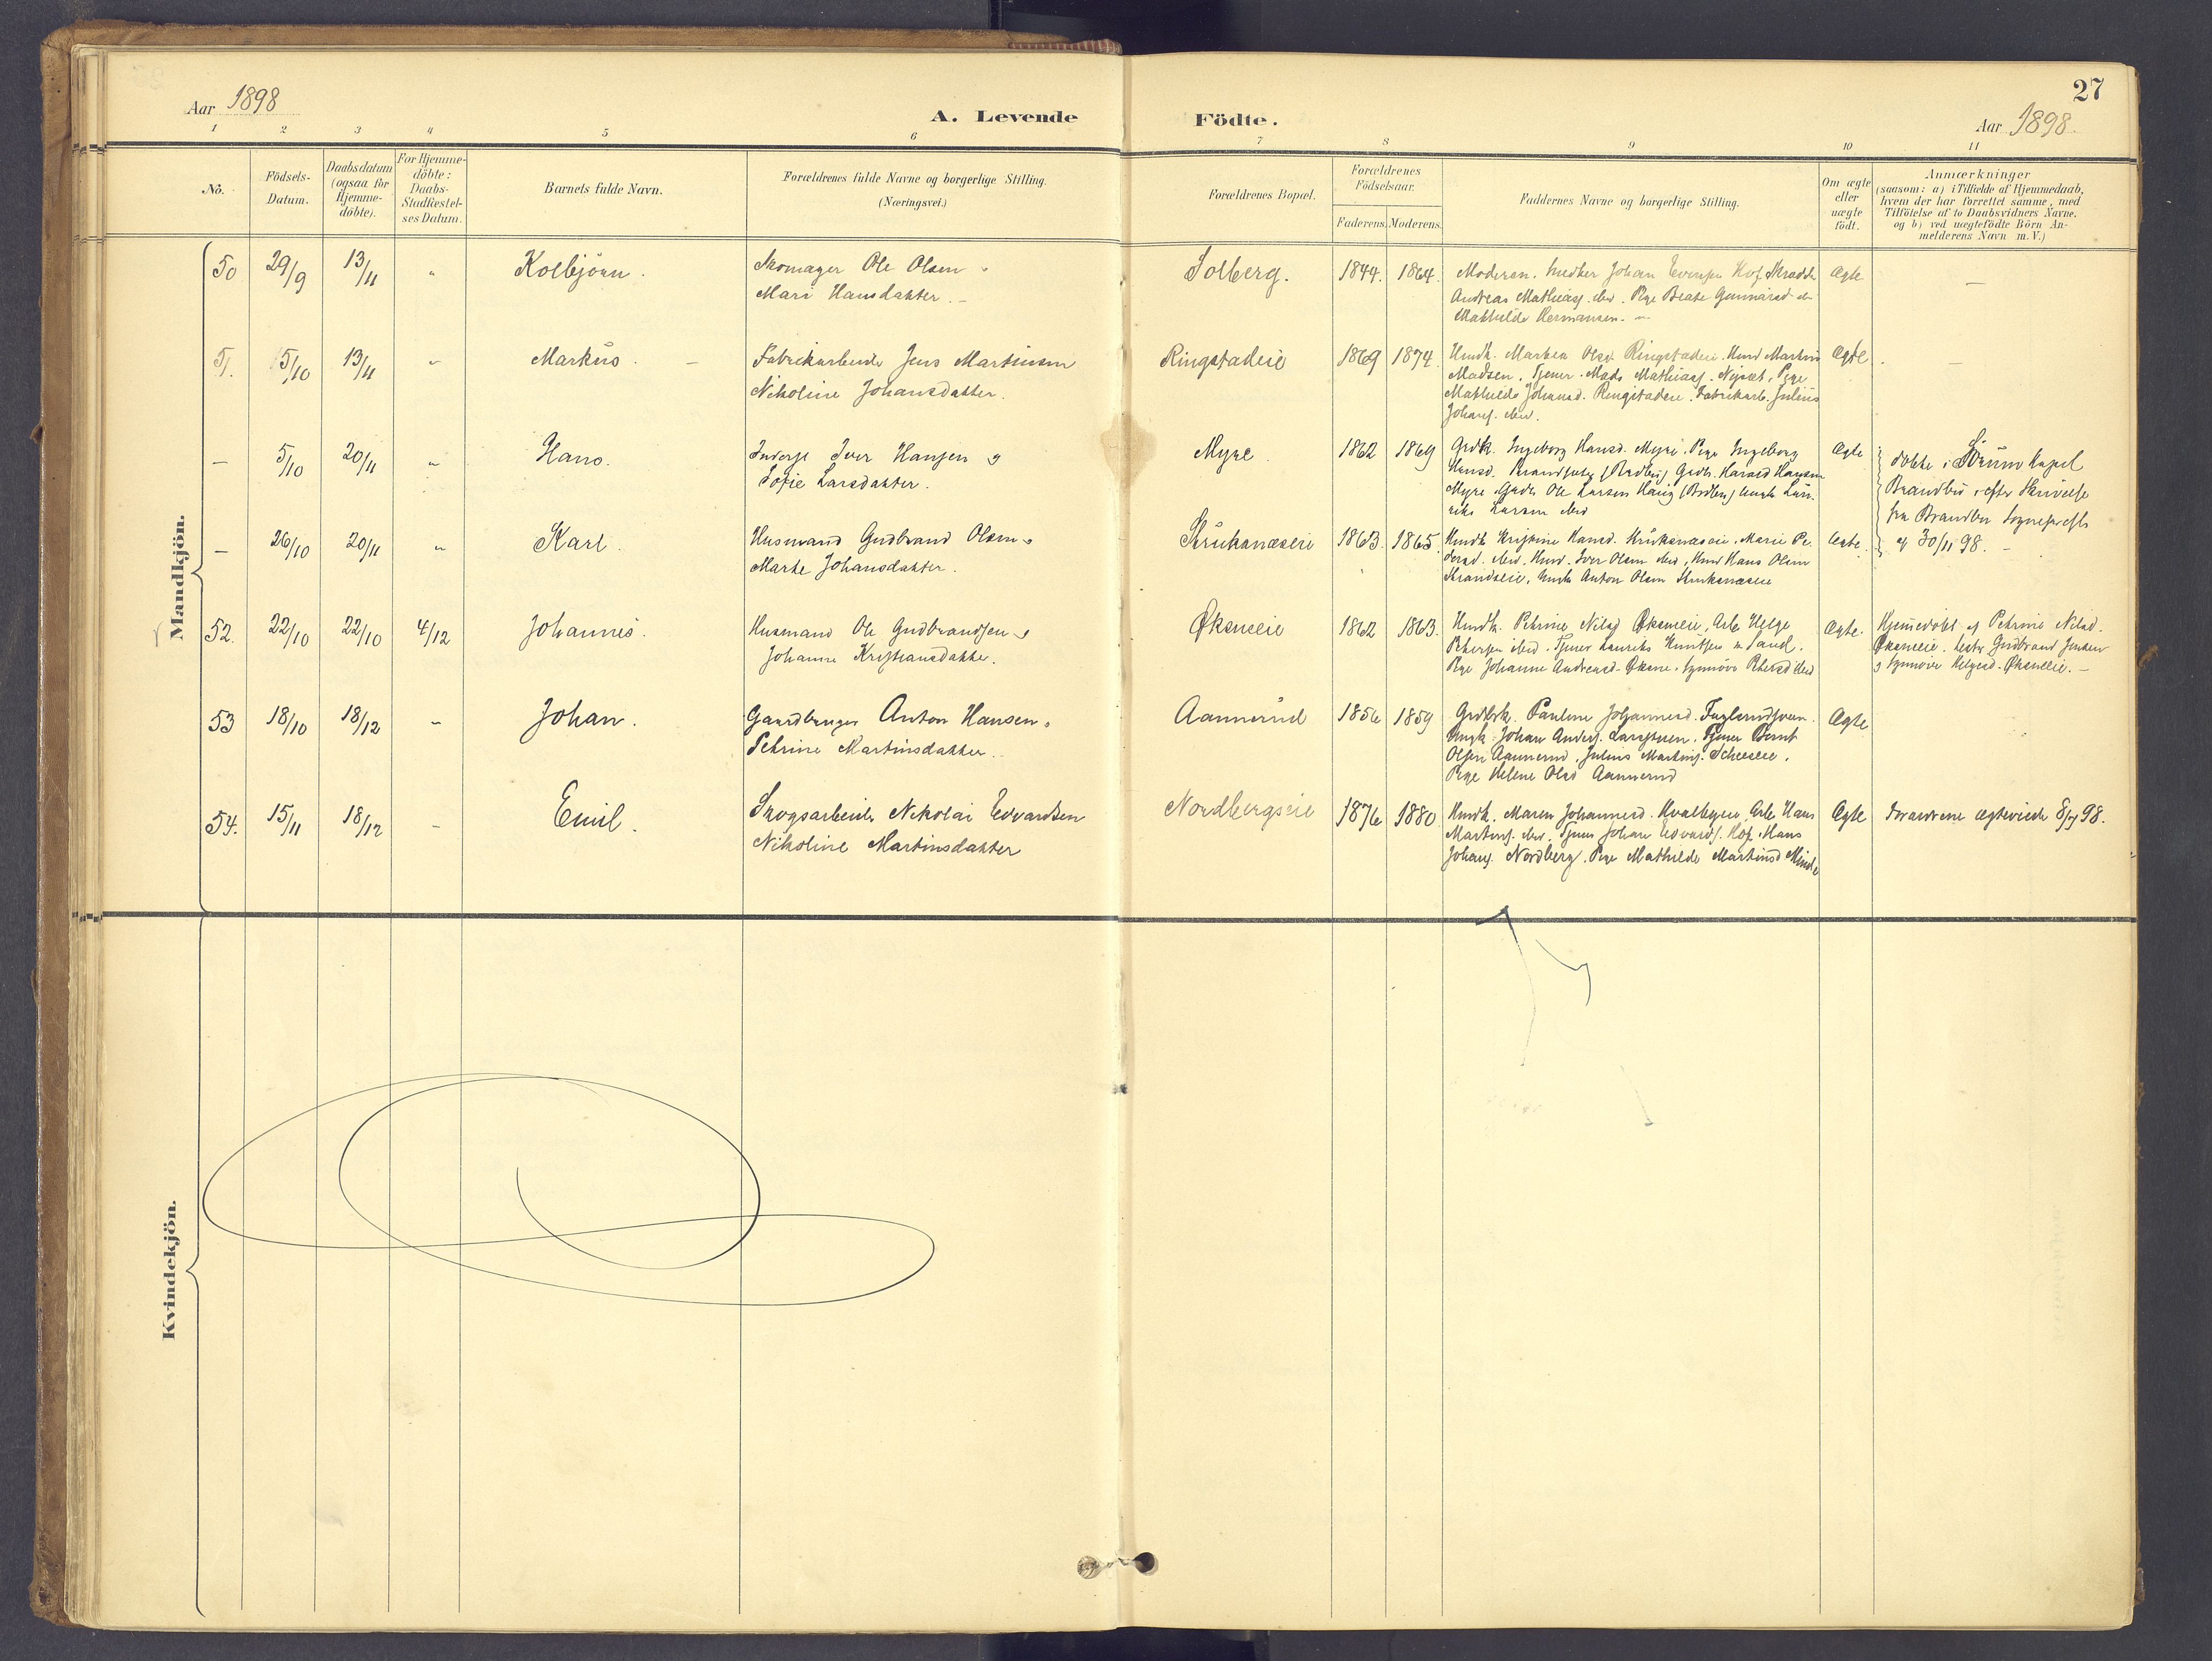 27
Aar 1898
A. Levende Födte.
Aar 1898.
1 2 3 4 5 6 7 8 9 10 11
No.
Födsels-
Datum.
Daabsdatum
(ogsaa for
Hjemme-
döbte).
For Hjemme-
döbte:
Daabs-
Stadfestel-
ses Datum.
Barnets fulde Navn.
Forældrenes fulde Navne og borgerlige Stilling.
(Næringsvei.)
Forældrenes Bopæl.
Forældrenes
Födselsaar.
Faderens. Moderens.
Faddernes Navne og borgerlige Stilling.
Om ægte
eller
uægte
födt.
Anmærkninger
(saasom: a) i Tilfælde af Hjemmedaab,
hvem der har forrettet samme, med
Tilföielse af to Daabsvidners Navne.
og b) ved uægtefödte Börn An-
melderens Navn m. V.)
Mandkjön.
50 29/9 13/11 " Kolbjörn.
Skomager Ole Olsen
Mari Hansdatter.
Solberg. 1844. 1864.
Moderen. Johan
Andreas Mathias. ibid. Pige Beate Gunnarsd.
Mathilde Hermansen.
Ægte
51. 5/10 13/11 " Markus.
Fabrikarbeider Jens Martinsen
Nikoline Johansdatter.
Ringstadeie 1869 1874.
Hmdk. Marken Olsd. Ringstadeie. Hmd Martin
Madsen. Tjener Mads Mathias. Pige
Mathilde Johansd. Ringstadeie. Fabrikarb. Julius
Johans. ibid.
Ægte
— 5/10 20/11 " Hans.
Inderst Iver Hansen og
Sofie Larsdatter.
Myre 1862 1869
Grdk. Ingeborg Hansd. Myre. Pige Ingeborg
Hansd. Grdbr. Harald Hansen
Myre. Grdbr Ole Larsen Haug
Larsen ibid
Ægte
döbte i Sörum Kapel
Brandbu, efter Skrivelse
fra Brandbu Sognepræst
af 30/11 98.
— 26/10 20/11 " Karl.
Husmand Gudbrand Olsen og
Marte Johansdatter.
Skrukanæseie 1863. 1865.
Hmdk Kristine Hansd. Marie Pe-
dersd. ibid. Hmd. Iver Olsen ibid, Hmd Hans Olsen
Strandseie, Ungk Anton Olsen
Ægte.
52. 22/10 22/10 4/12 Johannes.
Husmand Ole Gudbrandsen og
Johanne Kristiansdatter.
Øksneeie 1862 1863.
Hmdk. Petrine Nilsd Øksneeie, Arb. Helge
Pedersen ibid. Tjener Laurits Knutsen Sand.
Pige Johanne Andreasd. Øksne. Synnöve Petersd ibid
Ægte.
Hjemmedöbt af Petrine Nilsd.
Øksneeie. Gudbrand Jensen
og Synnöve Helgesd. Øksneeie.
53 18/10 18/12 " Johan.
Gaardbruger Anton Hansen og
Petrine Martinsdatter.
Aannerud 1856 1859
Grdbrk. Pauline Johannesd.
Ungk. Johan Anders. Tjener Bernt
Olsen Aannerud. Julius Martins.
Pige Helene Olsd Aannerud
Ægte
54. 15/11 18/12 " Emil.
Skogsarbeider Nikolai Edvardsen
Nikoline Martinsdatter
Nordbergseie 1876 1880
Hmdk. Maren Johannesd. Arb. Hans
Martins. ibid. Tjener Johan Edvards. Hans
Johans. Nordberg. Pige Mathilde Martinsd
Ægte
98.
Kvindekjön.